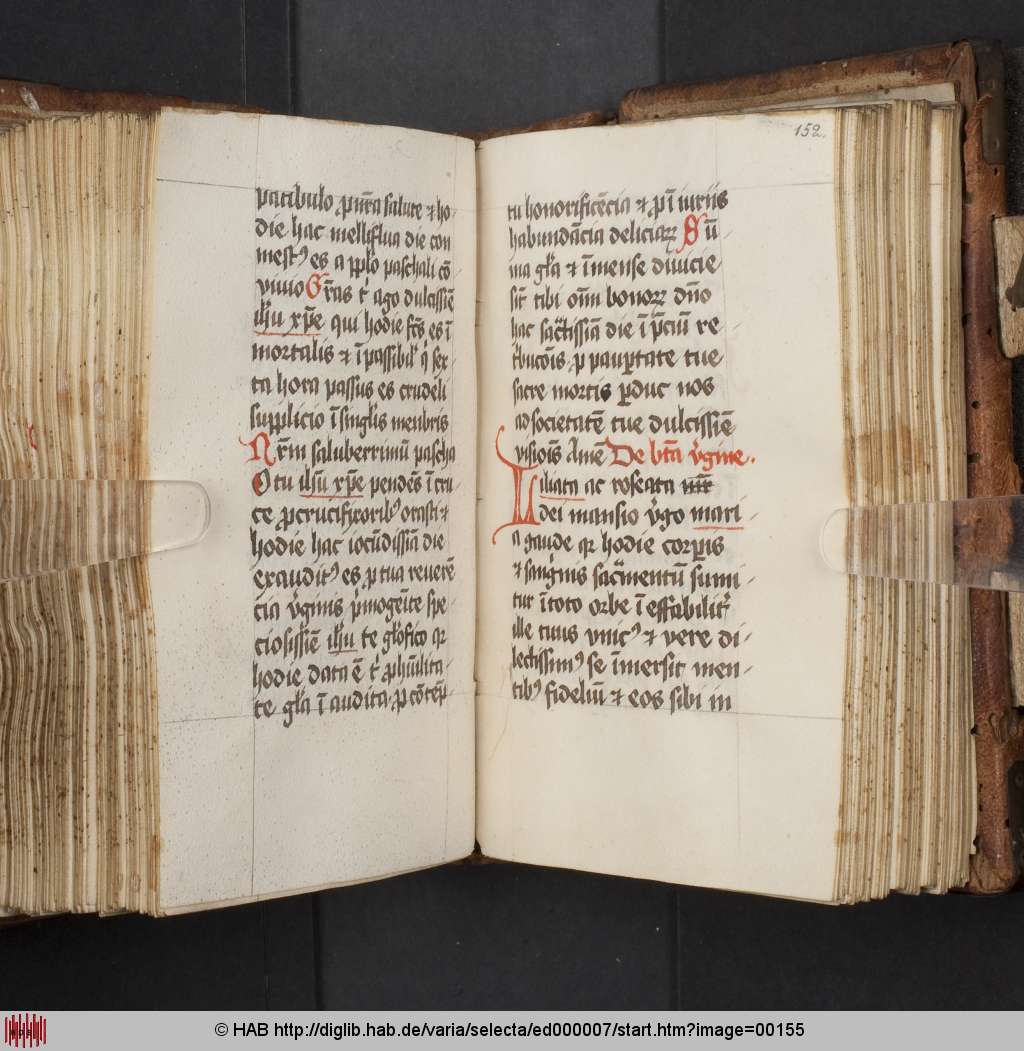 patibulo ꝓ nr̄a salute ⁊ ho-
die hac melliflua die con
mestꝰ es a ppl̓o paschali cō-
viuio Gr̄as t̓ ago dulcissiē
ih̄u xp̄e qui hodie fcs̄ es ī
mortalis ⁊ īpassibil̓ q̓ sex-
ta hora passus es crudeli
supplicio ī singlis menbris
Nr̄m saluberrimū pascha
O tu ih̄u xp̄e pendēs ī cru-
ce ꝓ crucifixoribꝰ orasti ⁊
hodie hac iocūdissīa die
exauditꝰ es ꝓ tua reuerē
cia v̓ginis p̓mogeīte spe-
ciosissiē ih̄u te glo̓fico qr
hodie data ē t̓ ꝓ hūilita-
te gl̓a ī audita ꝓ cōtēp-
152.
tu honorificēcia ⁊ ꝓ ī iuriis
habundācia deliciaꝝ Sū
ma gl̓a ⁊ īmense diuicie-
sīt tibi oīm bonoꝝ dn̄o
hac sāctissīa die ī p̄ciū re-
tͥbucoīs ꝓ paup̱tate tue
sacre mortis p̱duc nos
ad societatē tue dulcissiē
visiois̄ Amē De bt̄a v̓gine.
Liliata ac roseata
dei mansio v̓go mari-
a gaude qr hodie corp̱is
⁊ sanguīs sac̓mentū sumi-
tur ī toto orbe īeffabilit̓
ille tuus vnicꝰ ⁊ vere di-
lectissimꝰ se īmersit men-
tibꝰ fideliū ⁊ eos sibi in
© HAB http://diglib.hab.de/varia/selecta/ed000007/start.htm?image=00155